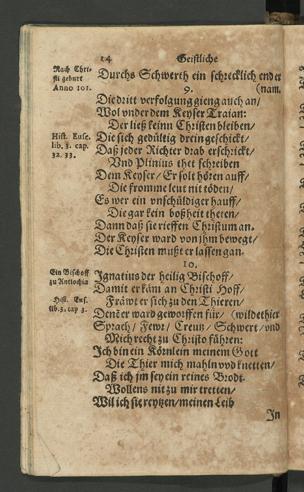 14 Geistliche
Nach Chri-
sti geburt
Anno 101.
Durchs Schwerth ein schrecklich end er
9. (nam.
Die dritt verfolgung gieng auch an/
Wol vnder dem Keyser Traian:
Der ließ keinn Christen bleiben/
Hist. Euse.
lib. 3. cap.
32. 33.
Die sich gedültig drein geschickt/
Daß jeder Richter drab erschrickt/
Vnd Plinius thet schreiben
Dem Keyser/ Er solt hören auff/
Die fromme leut nit töden/
Es wer ein vnschüldiger hauff/
Die gar kein boßheit theten/
Dann daß sie rieffen Christum an.
Der Keyser ward von jhm bewegt/
Die Christen must er lassen gan.
10.
Ein Bischoff
zu Antiochia
Ignatius der heilig Bischoff/
Damit er käm an Christi Hoff/
Hist. Eus.
lib. 3. cap 3.
Fräwt er sich zu den Thieren/
Denē er ward geworffen für/ (wilde thier
Sprach/ Fewr/ Creutz/ Schwert/ vnd
Mich recht zu Christo führen:
Ich bin ein Körnlein meinem Gott
Die Thier mich mahln vnd knetten/
Daß ich jm sey ein reines Brodt.
Wollens nit zu mir tretten/
Wil ich sie reytzen/ meinen Leib
In